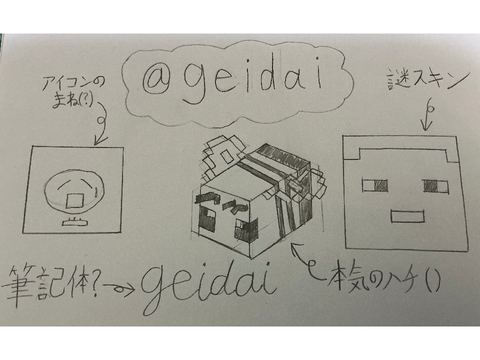 @geidai
アイコンの
まね(?)
謎スキン
筆記体?→geidai
本気のハチ()